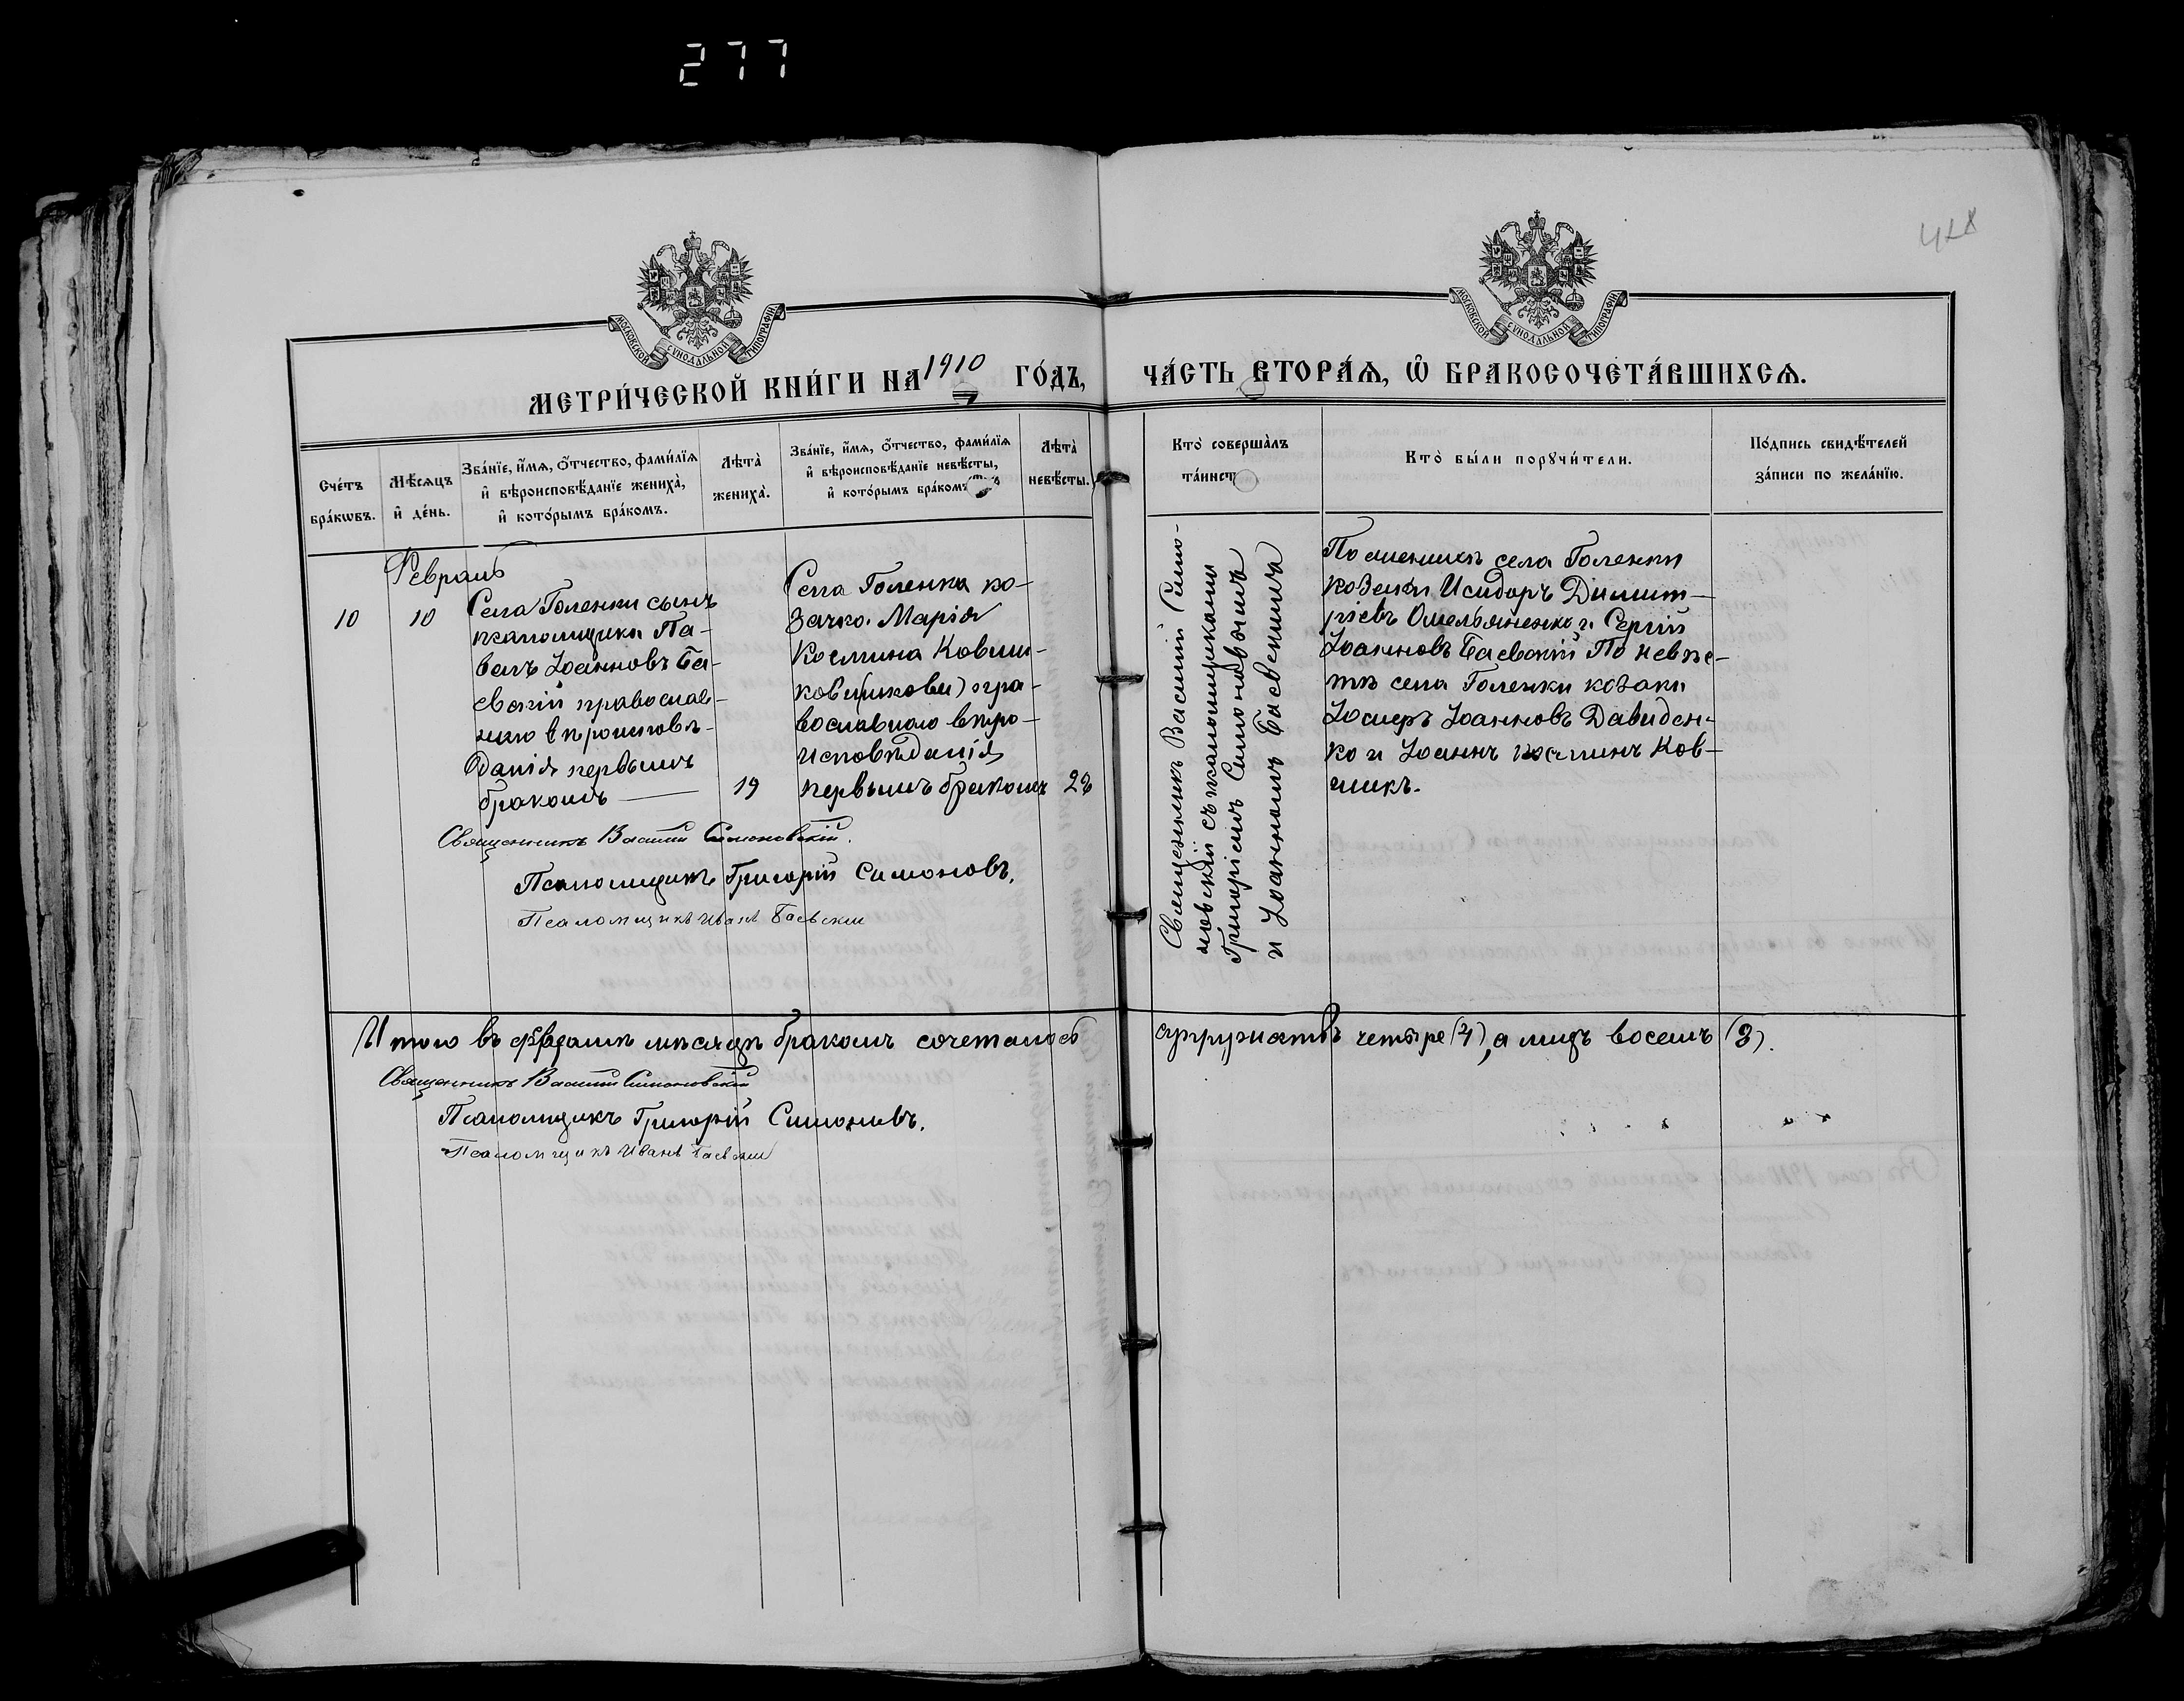 277
428
МОСКОВСКОЙ СѴНОДАЛЬНОЙ ТИПОГРАФІИ
МОСКОВСКОЙ СѴНОДАЛЬНОЙ ТИПОГРАФІИ
МЕТРИ́ЧЕСКОЙ КНИ́ГИ НА 1910 ГО́ДЪ,
ЧА́СТЬ ВТОРА́Я, Ѡ҆ БРАКОСОЧЕТА́ВШИХСЯ.
Сче́тъ
бра́кѡвъ.
Мѣ́сяцъ
и҆ де́нь.
Зва́нїе, и҆́мя, ѻ҆́тчество, фами́лїя
и҆ вѣроисповѣ́данїе жениха̀,
и҆ кото́рымъ бра́комъ.
Лѣта̀
жениха̀.
Зва́нїе, и҆́мя, ѻ҆́тчество, фами́лїя
и҆ вѣроисповѣ́данїе невѣ́сты,
и҆ кото́рымъ бра́комъ
Лѣта̀
невѣ́сты.
Кто̀ соверша́лъ
та́инст
Кто̀ бы́ли порꙋчи́тели.
По́дпись свидѣ́телей
за́писи по жела́нїю.
Февраль
10
10
Села Голенки сынъ
псаломщика Па-
велъ Іоанновъ Ба-
евскій православ-
наго вѣроисповѣ-
данія первымъ
бракомъ
19
Села Голенка ко-
зачка Марія
Космина Ковши-
кова (шкови) пра-
вославнаго вѣро-
исповѣданія
первымъ бракомъ
22
Священникъ Василій Симо-
новскій съ псаломщиками
Григоріемъ Симоновымъ
и Іоанномъ Баевскимъ
По женихѣ села Голенки
козаки Исидоръ Димит-
ріевъ Омельяненко и Сергій
Іоанновъ Баевскій По невѣс-
тѣ села Голенки козаки
Іосифъ Іоанновъ Давиден-
ко и Іоаннъ Косминъ Ков-
шикъ.
Священникъ Василій Симоновскій.
Псаломщикъ Григорій Симоновъ.
Псаломщикъ Иванъ Баевскій
Итого въ февралѣ мѣсяцѣ бракомъ сочеталось
супружествъ четыре (4), а лицъ восемь (8).
Священникъ Василій Симоновскій
Псаломщикъ Григорій Симоновъ.
Псаломщикъ Иванъ Баевскій